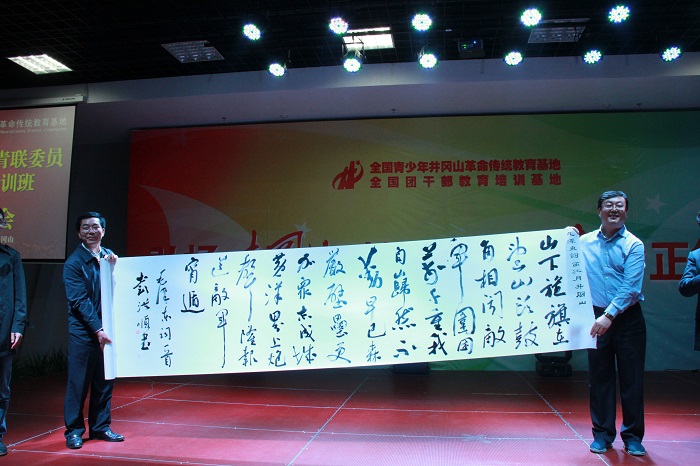 革命传统教育基地
青联委员
训班
会
冈山
全国青少年井冈山革命传统教育基地
全国团干部教育培训基地
正
西江月井冈山
山下旌旗在
望山头鼓
角相闻敌
軍圍困
萬千重我
自巋然不
動早已森
嚴壁壘更
加眾志成城
黄洋界上炮
聲隆報
道敵軍
宵遁
毛泽东词一首